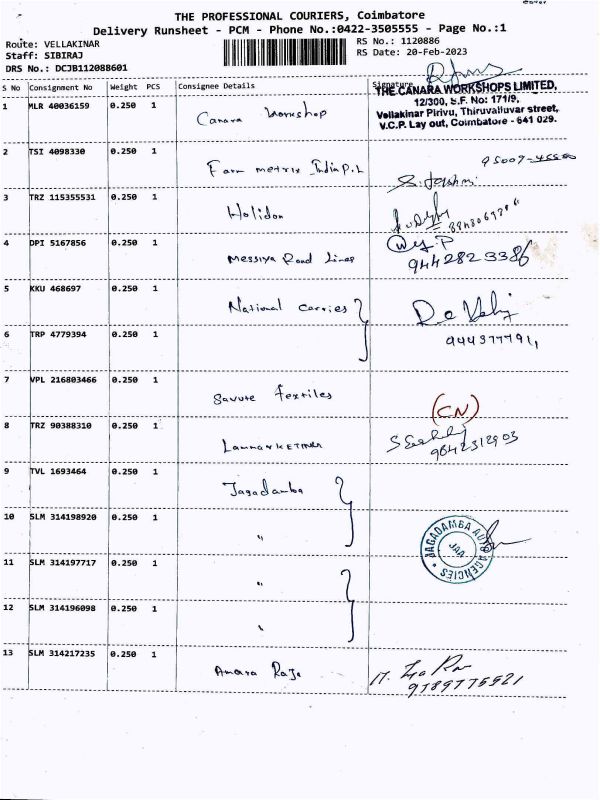 THE PROFESSIONAL COURIERS, Coimbatore
Delivery Runsheet - PCM - Phone No.:0422-3505555 - Page No.:1
Route: VELLAKINAR
RS No.: 1120886
Staff: SIBIRAJ
RS Date: 20-Feb-2023
DRS No.: DCJB112088601
S No Consignment No Weight PCS Consignee Details Signature
THE CANARA WORKSHOPS LIMITED,
12/300, S.F. No: 171/9,
Vellakinar Pirivu, Thiruvalluvar street,
V.C.P. Lay out, Coimbatore - 641 029.
1 MLR 40036159 0.250 1 Canara Workshop
2 TSI 4098330 0.250 1 Farm metrix India P.L
3 TRZ 115355531 0.250 1 Holidon
4 DPI 5167856 0.250 1 Messiya Road Lines
9442823386
5 KKU 468697 0.250 1 National Carries
6 TRP 4779394 0.250 1
7 VPL 216803466 0.250 1 Savute Textiles
(CN)
8 TRZ 90388310 0.250 1
9842312903
9 TVL 1693464 0.250 1 Jagadamba
10 SLM 314198920 0.250 1 "
JAGADAMBA AUTO AGENCIES
JAA
11 SLM 314197717 0.250 1 "
12 SLM 314196098 0.250 1 "
13 SLM 314217235 0.250 1 Amara Raja
9789775921